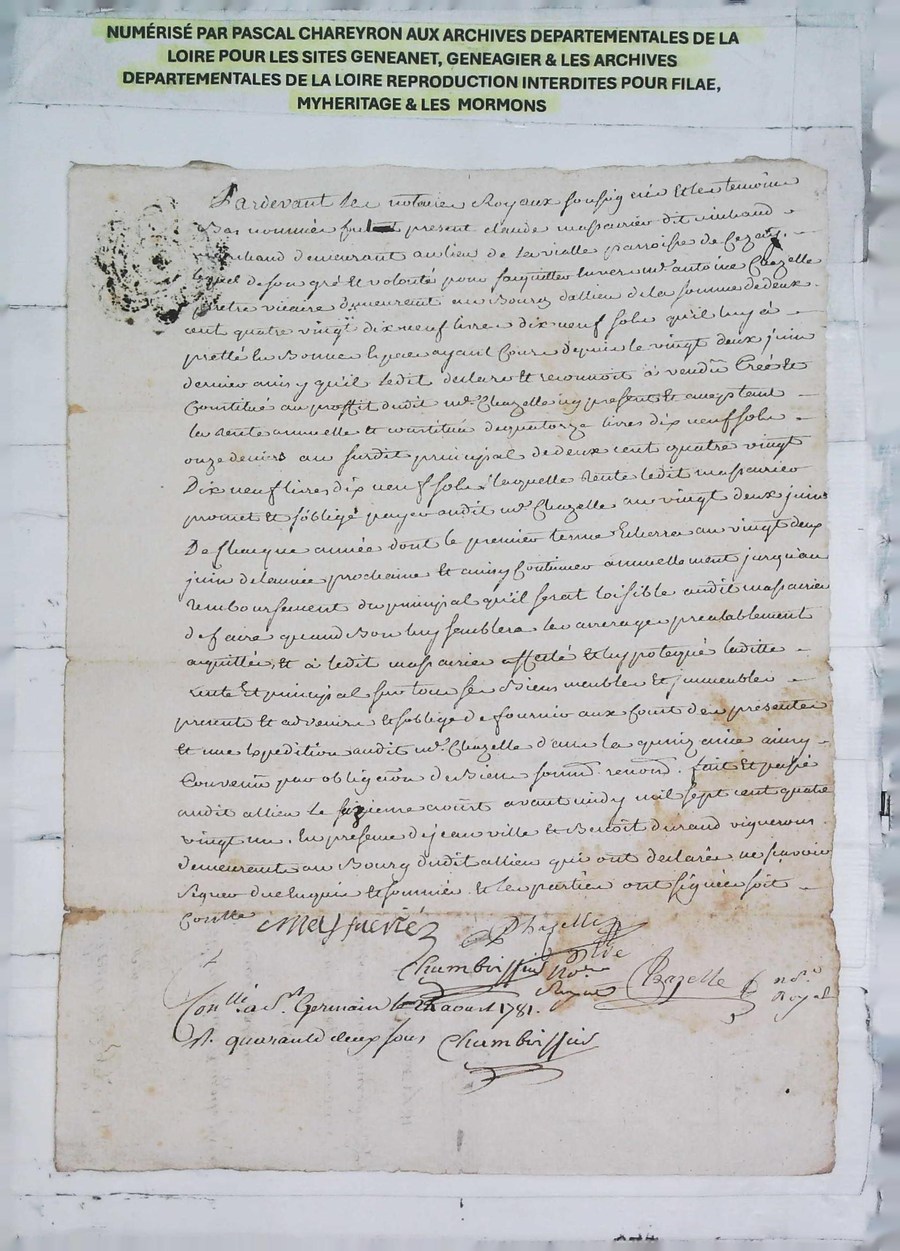 NUMÉRISÉ PAR PASCAL CHAREYRON AUX ARCHIVES DEPARTEMENTALES DE LA
LOIRE POUR LES SITES GENEANET, GENEAGIER & LES ARCHIVES
DEPARTEMENTALES DE LA LOIRE REPRODUCTION INTERDITES POUR FILAE,
MYHERITAGE & LES MORMONS
Pardevant les notaires Royaux soussignés et les temoins
Bas nommés fut present claude massacrier dit
demeurant au lieu de lavialle parroisse de Cezay
lequel de son gré et volonté pour s'aquitter envers mr. antoine Chazelle
pretre vicaire demeurent au Bourg dallieu de la somme de deux
cent quatre vingt dix neuf livres dix neuf sols qu'il luy à
pretté en Bonnes Espece ayant Cours depuis le vingt deux juin
dernier ainsy qu'il ledit declare et reconnoit à vendu Créé et
Constitué au proffit dudit mr. Chazelle icy present et acceptant
la rente annuelle et constituée de quatorze livres dix neuf sols
onze deniers au susdit principal de deux cent quatre vingt
Dix neuf livres dix neuf sols laquelle Rente ledit massacrier
promet et s'oblige payer audit mr. Chazelle au vingt deux juin
De Chaque année dont le premier terme Echerra au vingt deux
juin de lannée prochaine et ainsy Continuer annuellement jusqu'au
remboursement du principal qu'il serat loisible audit massacrier
de faire quand Bon luy semblera les arrerages prealablement
aquittés, et à ledit massacrier affecté et hypotequé laditte
rente Et principal sur tous ses Biens meubles et jmmeubles
presents et advenirs et s'oblige de fournir aux fraix des présentes
et une Expedition audit mr. Chazelle dans la quinzaine ainsy
Convenu par obligation de Biens soumis. renond. fait et passé
audit allieu le seizieme aoust avant midy mil sept cent quatre
vingt un. En presence de jean ville et Benoit durand vignerons
demeurent au Bourg dudit allieu qui ont declarés ne scavoir
signer de enquis et sommés et les parties ont signées soit
Conllé
Massacrié
Chazelle
ptre
Chamboissier Nore
Royal
Chazelle nore
Royal
Conllé a St. Germain le aoust 1781.
R. quarante deux sous Chamboissier